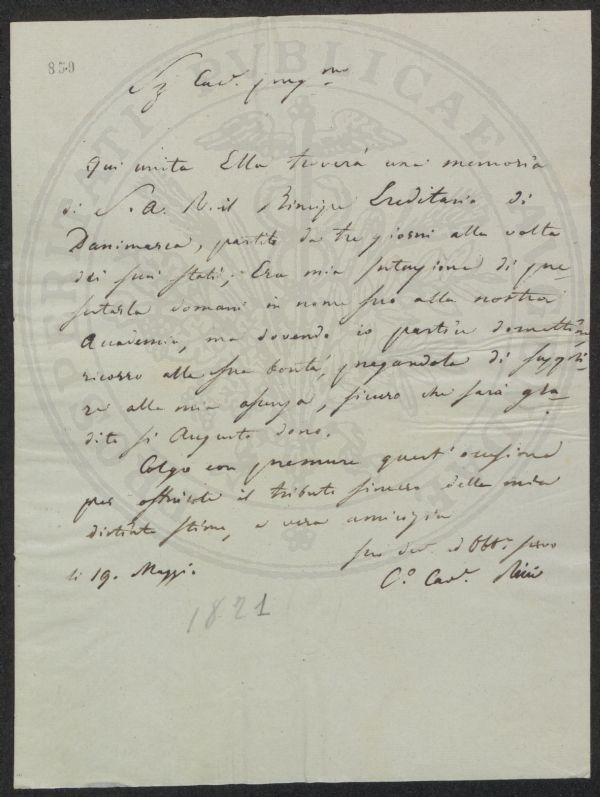 850
Sig Cav.e preg.mo
Qui unita Ella troverà una memoria
di S. A. R. il Principe Ereditario di
Danimarca, partito da tre giorni alla volta
dei suoi stati; Era mia intenzione di pre=
sentarla domani in nome suo alla nostra
Accademia, ma dovendo io partire domattina
ricorro alla sua bontà, pregandola di suppli=
re alla mia assenza, sicuro che sarà gra=
dito sì Augusto dono.
Colgo con premura quest'occasione
per offrirle il tributo sincero della mia
distinta stima, e vera amicizia
suo dev. ed Obb.o servo
C.o Cav.e
li 19. Maggio
1821